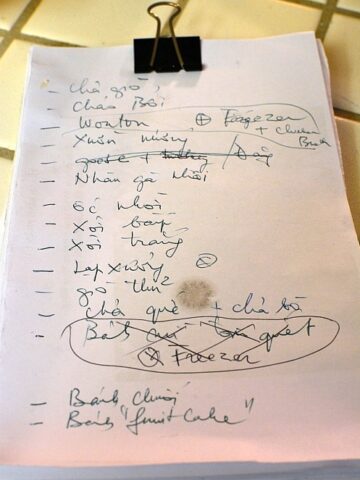 - Chả giò
- Cháo Bồi
- Wonton ⊕ Freezer
+ Chicken Broth
- Xườn nướng
-
- Nhân gà nhồi
- ốc nhồi
- Xôi bắp
- Xôi trắng
- Lạp xưởng 2
- giò thủ
- chả quế + chả
- Bánh quet
Freezer
- Bánh Chuối
- Bánh "fruit Cake"